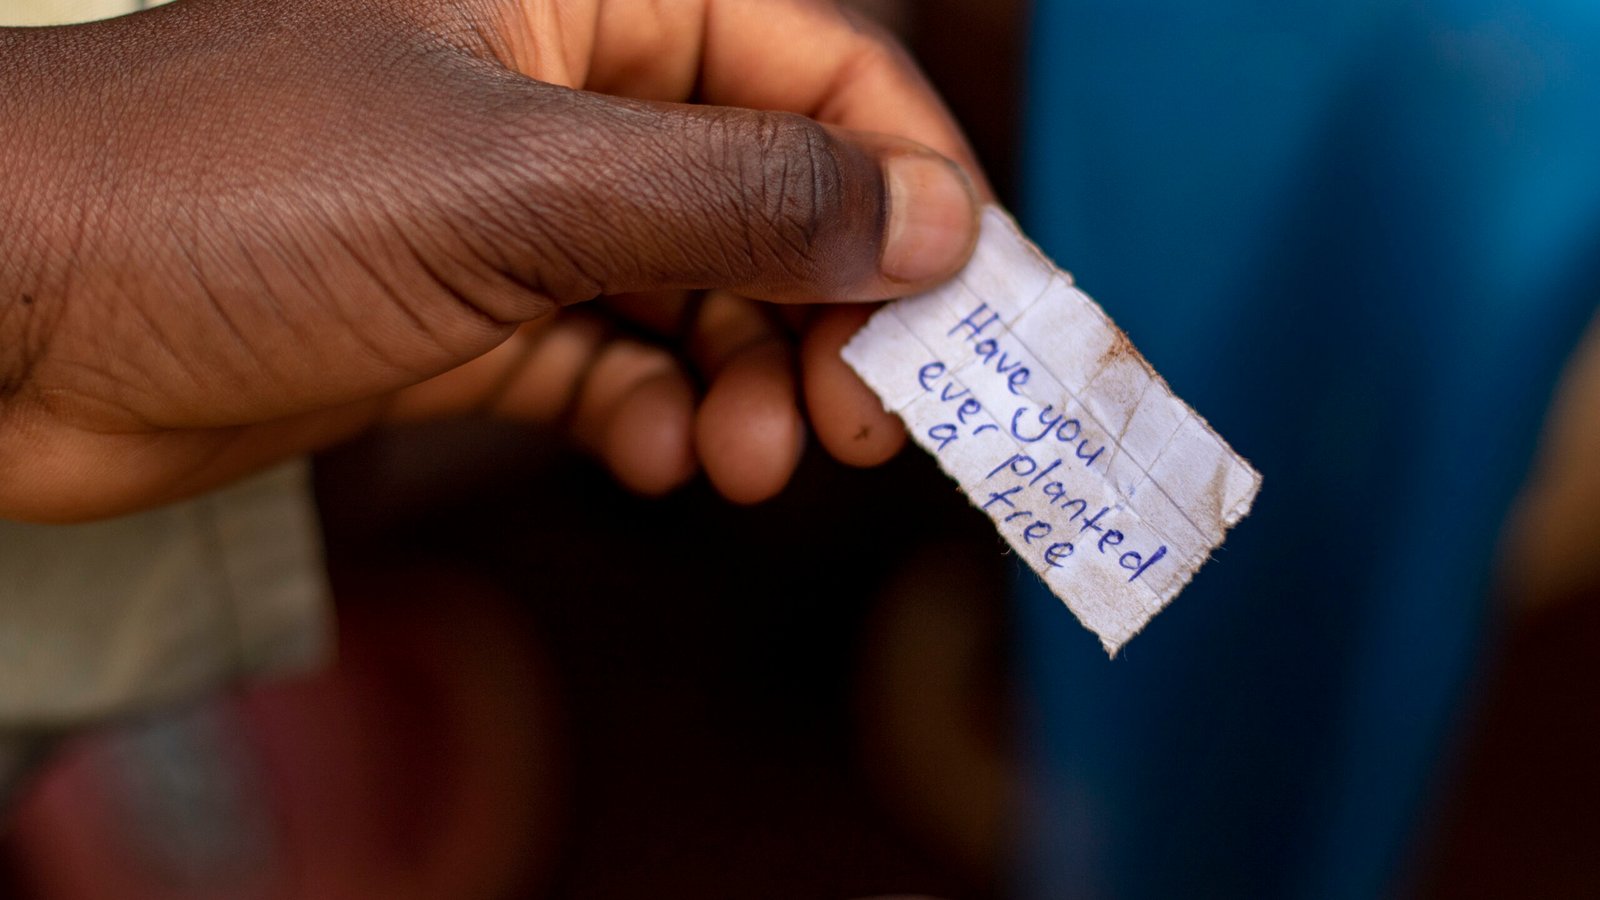 Have you
ever planted
a tree